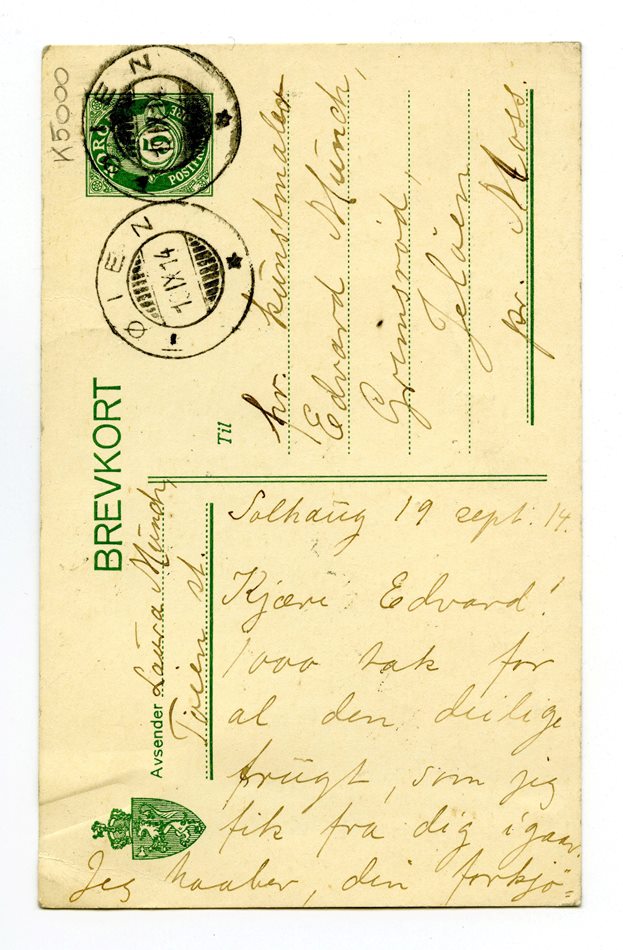 K5000
NORGE
5
POSTFRIM ØRE
ØIEN
ØIEN
1.IX.14
BREVKORT
Til
hr. kunstmaler
Edvard Munch,
Grimsrød,
Jeløen
pr. Moss.
Avsender Laura Munch,
Tøien st.
Solhaug 19 sept. 14.
Kjære Edvard!
1000 tak for
al den deilige
frugt, som jeg
fik fra dig igaar.
Jeg haaber, din forkjø=